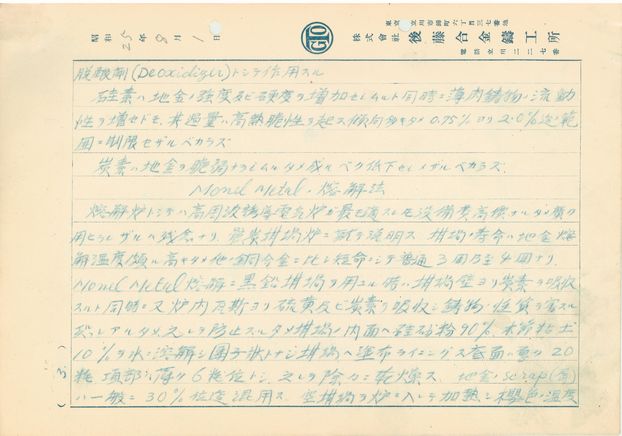 昭和25年8月1日
GTO
東京 立川市錦町六丁目三七番地
株式會社 後藤合金鑄工所
電話立川二二七番
脱酸剤(Deoxidizer)トシテ作用スル
硅素ハ地金ノ強度及ビ硬度ヲ増加セシムルト同時ニ薄肉鋳物ノ流動
性ヲ増セドモ、其過量ハ高熱脆性ヲ起ス傾向アルタメ0.75%ヨリ2.0%迄ノ範
囲ニ制限セザルベカラズ
炭素ハ地金ヲ脆弱ナラシムルタメ成ルベク低下セシメザルベカラズ.
Monel Metal.熔解法
熔解炉トシテハ高周波誘導電気炉ガ最モ適スルモ設備費高價ナルタメ
用ヒラレザルハ残念ナリ. 坩堝炉ニ就テ説明ス. 坩堝ノ壽命ハ地金熔
解温度頗ル高キタメ他ノ銅合金ニ比シ短命ニシテ普通3回乃至4回ナリ.
Monel Metal熔解ニ黒鉛坩堝ヲ用フル時ハ坩堝壁ヨリ炭素ヲ吸收
スルト同時ニ又炉内瓦斯ヨリ硫黄及ビ炭素ヲ吸收シ鋳物ノ性質ヲ害スル
アルタメ之レヲ防止スルタメ坩堝ノ内面ヘ硅砂粉90%、木節粘土
10%ヲ水ニ溶解シ團子状トナシ坩堝ヘ塗布ライニングス底面ハ厚ク20
粍頂部ハ薄ク6粍位トシ、之レヲ除々ニ乾燥ス. 地金ノscrap(屑)
ハ一般ニ30%位迄混用ス. 空坩堝ヲ炉ニ入レテ加熱シ櫻色ノ温度
(3)